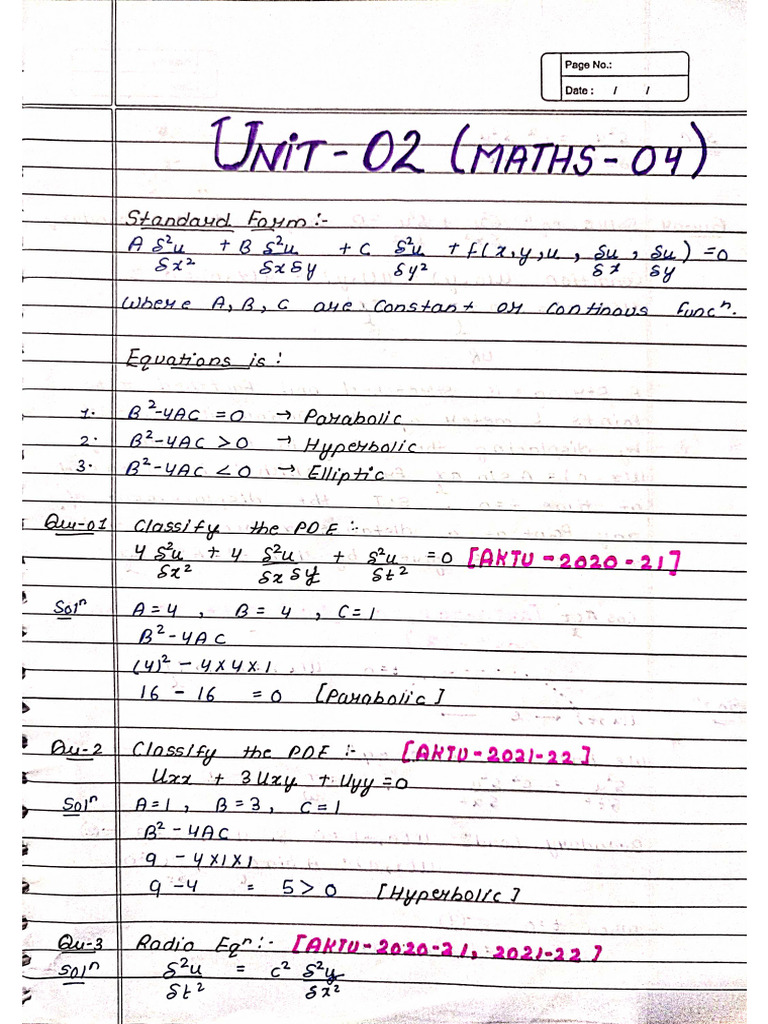 Page No.:
Date : / /
UNIT-02 (MATHS-04)
Standard Form:-
A δ²u/δx² + B δ²u/δxδy + C δ²u/δy² + f(x,y,u, δu/δx, δu/δy) =0
Where A, B, C are Constant or Continous Funcⁿ.
Equations is:
1. B²-4AC =0 → Parabolic
2. B²-4AC >0 → Hyperbolic
3. B²-4AC <0 → Elliptic
Qu-01 Classify the PDE:-
4 δ²u/δx² + 4 δ²u/δxδy + δ²u/δt² =0 [AKTU-2020-21]
Solⁿ A=4, B=4, C=1
B²-4AC
(4)²-4×4×1
16-16 =0 [Parabolic]
Qu-2 Classify the PDE:- [AKTU-2021-22]
Uxx + 3Uxy + Uyy=0
Solⁿ A=1, B=3, C=1
B²-4AC
9-4×1×1
9-4 = 5>0 [Hyperbolic]
Qu-3 Radio Eqⁿ:- [AKTU-2020-21, 2021-22]
Solⁿ δ²u/δt² = c² δ²y/δx²